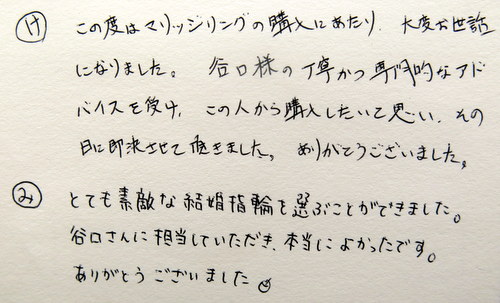 け この度はマリッジリングの購入にあたり、大変お世話
になりました。谷口様の丁寧かつ専門的なアド
バイスを受け、この人から購入したいと思い、その
日に即決させて頂きました。ありがとうございました。
み とても素敵な結婚指輪を選ぶことができました。
谷口さんに担当していただき、本当によかったです。
ありがとうございました